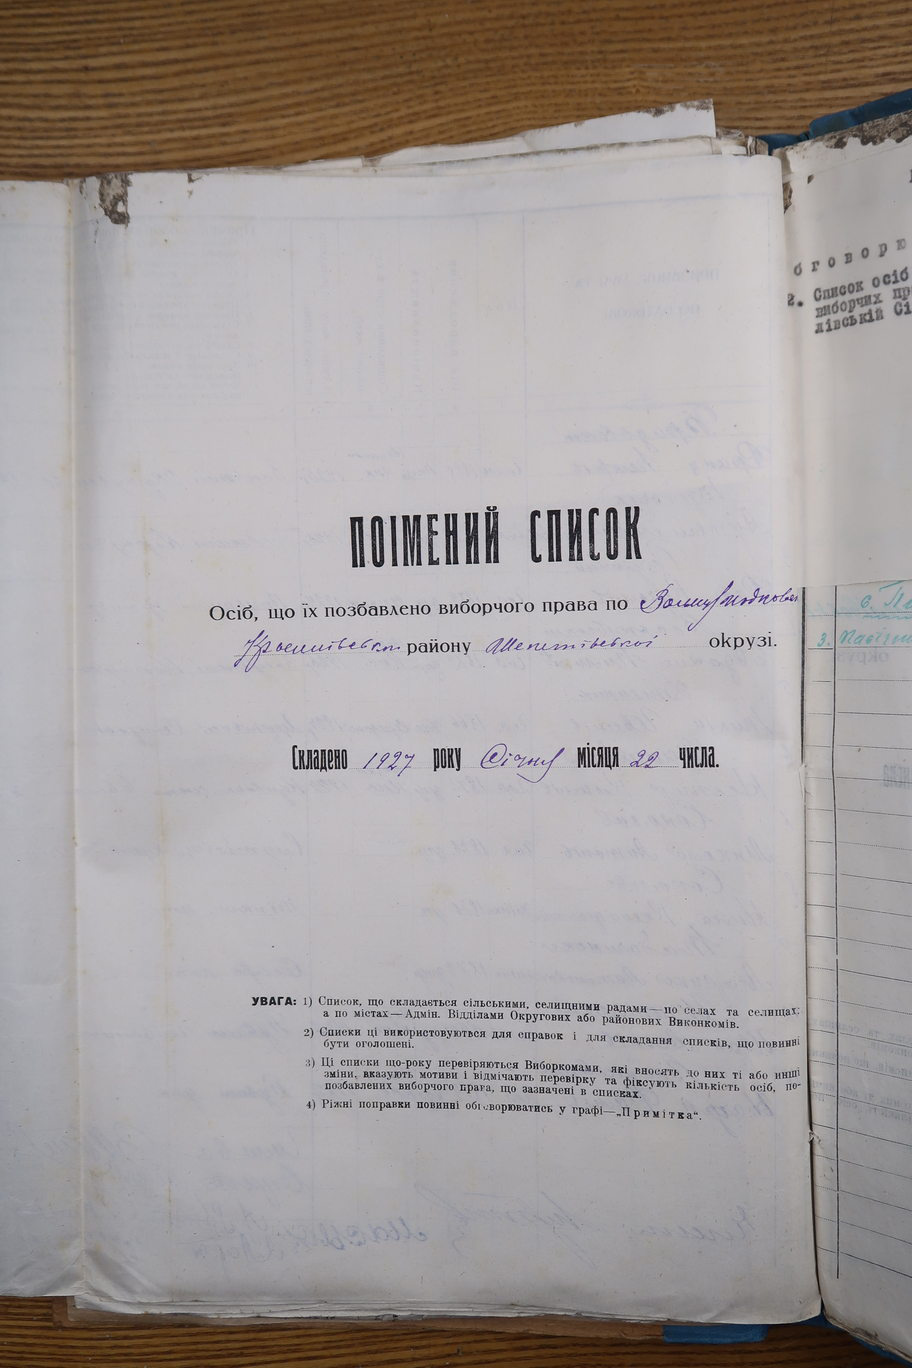 ПОІМЕНИЙ СПИСОК
Осіб, що їх позбавлено виборчого права по
району Шепетівської окрузі.
Складено 1927 року Січня місяця 22 числа.
УВАГА: 1) Список, що складається сільськими, селищними радами—по селах та селищах,
а по містах—Адмін. Відділами Округових або районових Виконкомів.
2) Списки ці використовуються для справок і для складання списків, що повинні
бути оголошені.
3) Ці списки що-року перевіряються Виборкомами, які вносять до них ті або инші
зміни, вказують мотиви і відмічають перевірку та фіксують кількість осіб, по-
позбавлених виборчого права, що зазначені в списках.
4) Ріжні поправки повинні обговорюватись у графі—„Примітка“.
бговорю
2. Список осіб
виборчих пр
лівській Сі